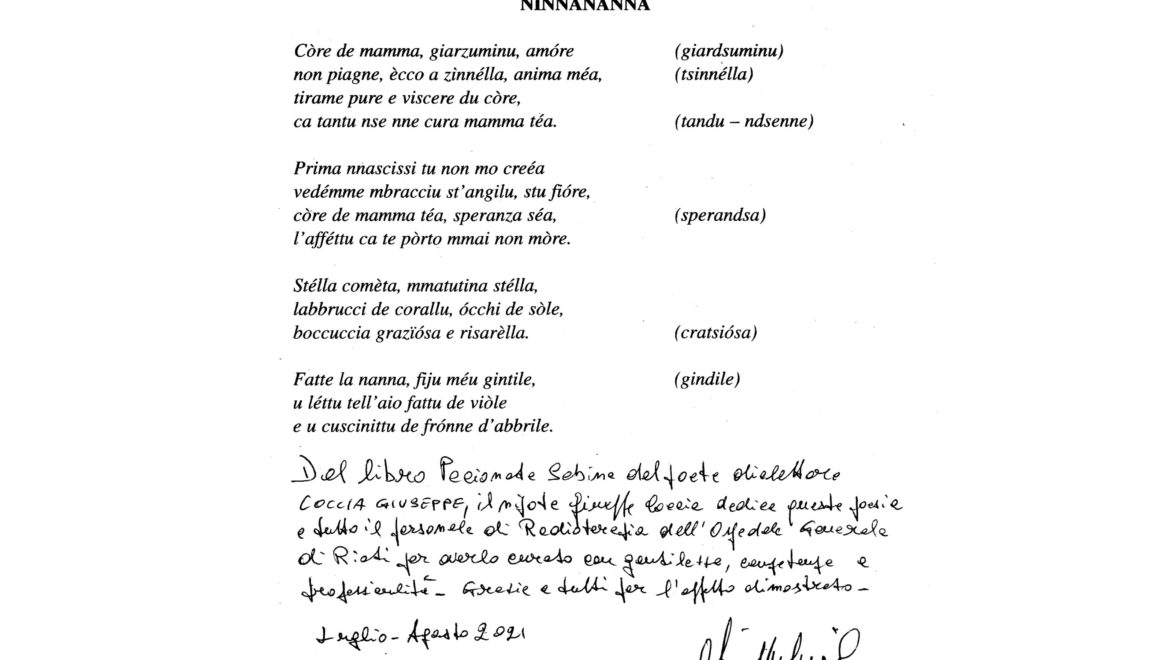 NINNANANNA
Còre de mamma, giarzuminu, amóre (giardsuminu)
non piagne, ècco a zìnnélla, anima méa, (tsinnélla)
tirame pure e viscere du còre,
ca tantu nse nne cura mamma téa. (tandu – ndsenne)
Prima nnascissi tu non mo creéa
vedémme mbracciu st'angilu, stu fióre,
còre de mamma téa, speranza séa, (sperandsa)
l'afféttu ca te pòrto mmai non mòre.
Stélla comèta, mmatutina stélla,
labbrucci de corallu, ócchi de sòle,
boccuccia grazïósa e risarèlla. (cratsiósa)
Fatte la nanna, fiju méu gintile, (gindile)
u léttu tell'aio fattu de viòle
e u cuscinittu de frónne d'abbrile.
Dal libro Pecionate Sabine del poeta dialettale
COCCIA GIUSEPPE, il nipote Giuseppe Coccia dedica questa poesia
a tutto il personale di Radioterapia dell'Ospedale Generale
di Rieti per averlo curato con gentilezza, competenza e
professionalità – Grazie a tutti per l'affetto dimostrato –
Luglio - Agosto 2021